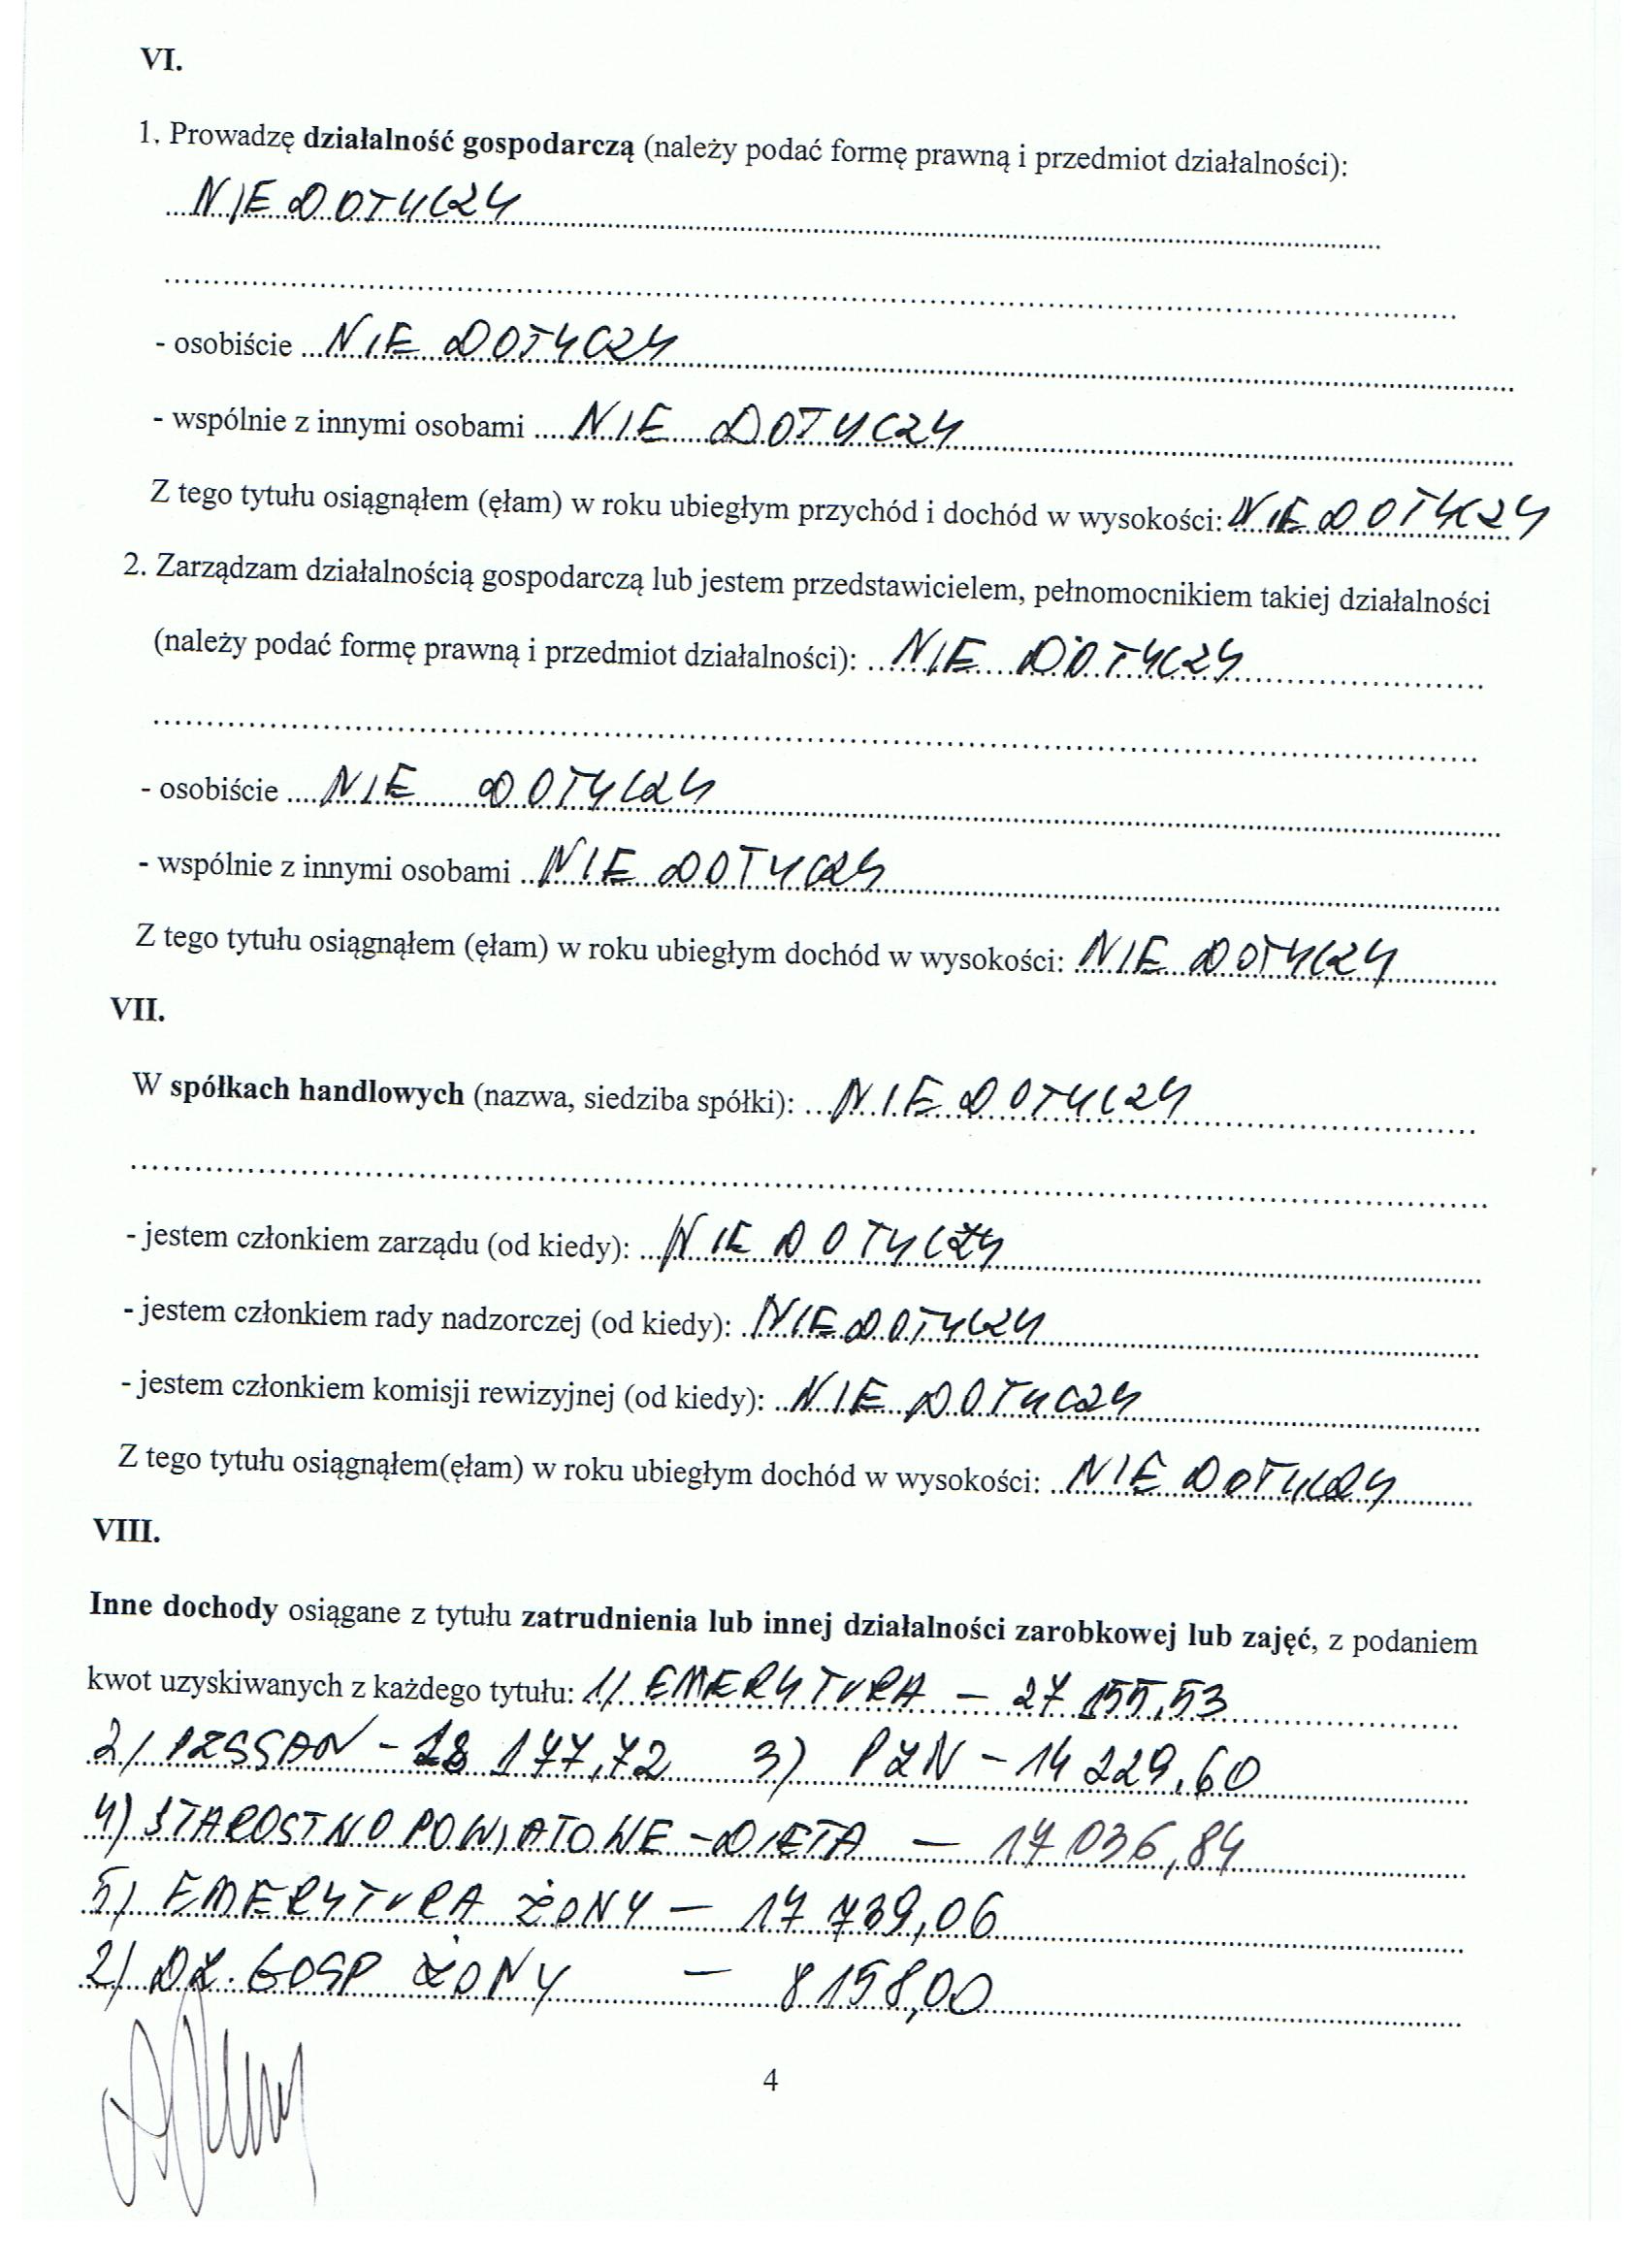 VI.
1. Prowadzę działalność gospodarczą (należy podać formę prawną i przedmiot działalności):
NIE DOTYCZY
- osobiście NIE DOTYCZY
- wspólnie z innymi osobami NIE DOTYCZY
Z tego tytułu osiągnąłem (ęłam) w roku ubiegłym przychód i dochód w wysokości: NIE DOTYCZY
2. Zarządzam działalnością gospodarczą lub jestem przedstawicielem, pełnomocnikiem takiej działalności
(należy podać formę prawną i przedmiot działalności): NIE DOTYCZY
- osobiście NIE DOTYCZY
- wspólnie z innymi osobami NIE DOTYCZY
Z tego tytułu osiągnąłem (ęłam) w roku ubiegłym dochód w wysokości: NIE DOTYCZY
VII.
W spółkach handlowych (nazwa, siedziba spółki): NIE DOTYCZY
- jestem członkiem zarządu (od kiedy): NIE DOTYCZY
- jestem członkiem rady nadzorczej (od kiedy): NIE DOTYCZY
- jestem członkiem komisji rewizyjnej (od kiedy): NIE DOTYCZY
Z tego tytułu osiągnąłem(ęłam) w roku ubiegłym dochód w wysokości: NIE DOTYCZY
VIII.
Inne dochody osiągane z tytułu zatrudnienia lub innej działalności zarobkowej lub zajęć, z podaniem
kwot uzyskiwanych z każdego tytułu: 1/ EMERYTURA – 27 155,53
2/ PZSSAN - 18 177,72 3) PZN - 14 229,60
4) STAROSTWO POWIATOWE - DIETA – 17 036,84
5) EMERYTURA ŻONY – 17 739,06
2/ DZ. GOSP ŻONY – 8 158,00
4